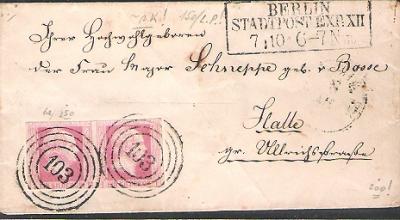 BERLIN
STADTPOST EXP. XII
7 10 6-7 N
Ihrer Hochwohlgeboren
der Frau Major Schneppe geb. v Bosse
Halle
gr. Ullrichstraße
103
103